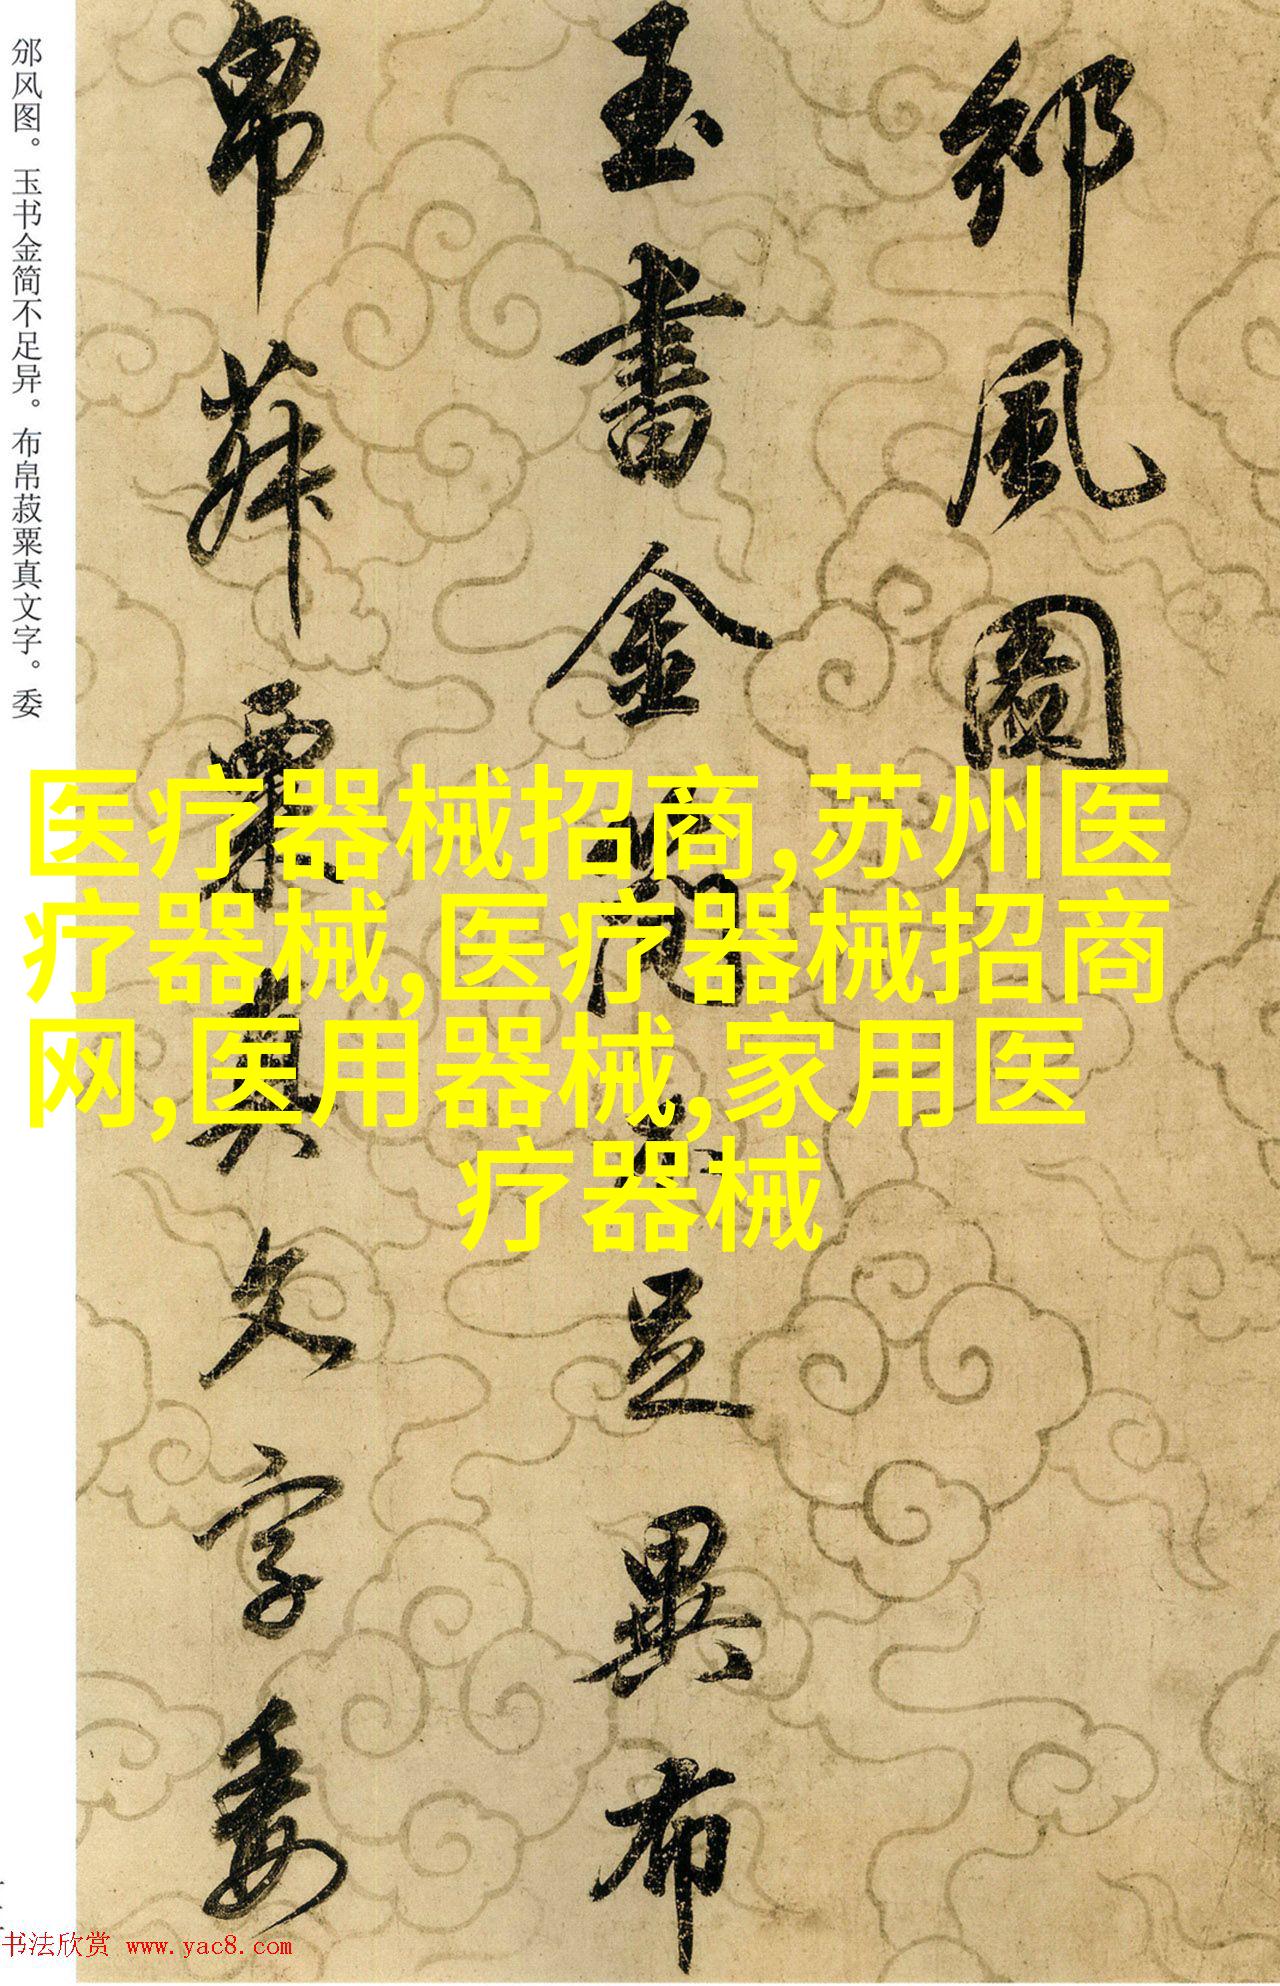 邠风图。玉书金简不足异。布帛菽粟真文字。委
邠風圖
玉書金簡不足異布
帛菽粟真文字委
医疗器械招商,苏州医
疗器械,医疗器械招商
网,医用器械,家用医
疗器械
书法欣赏 www.yac8.com